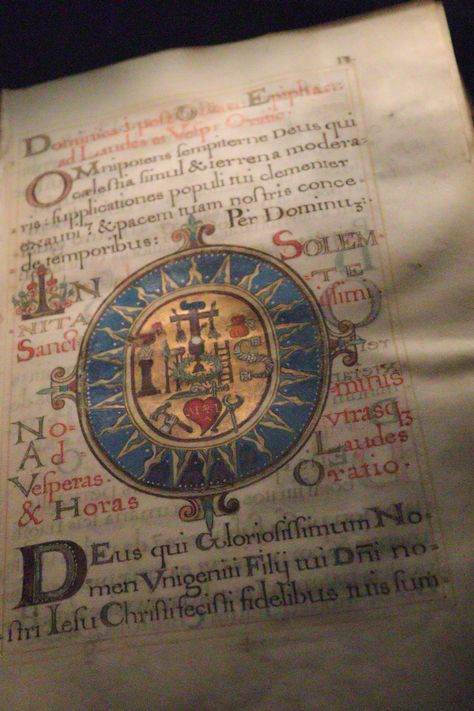 Dominica post Epipha
ad Laudes et Vesp. Oratio.
OMnipotens sempiterne Deus qui
cælestia simul & terrena modera-
ris: supplicationes populi tui clementer
exaudi, & pacem tuam nostris conce-
de temporibus: Per Dominuȝ:
IN SOLEM
NITA TE
Sancti ssimi
No minis
Ad vtrasqȝ
Vesperas. Laudes
& Horas Oratio.
DEus qui Gloriosissimum No-
men Vnigeniti Filij tui Dñi no-
stri Iesu Christi fecisti fidelibus tuis sum-